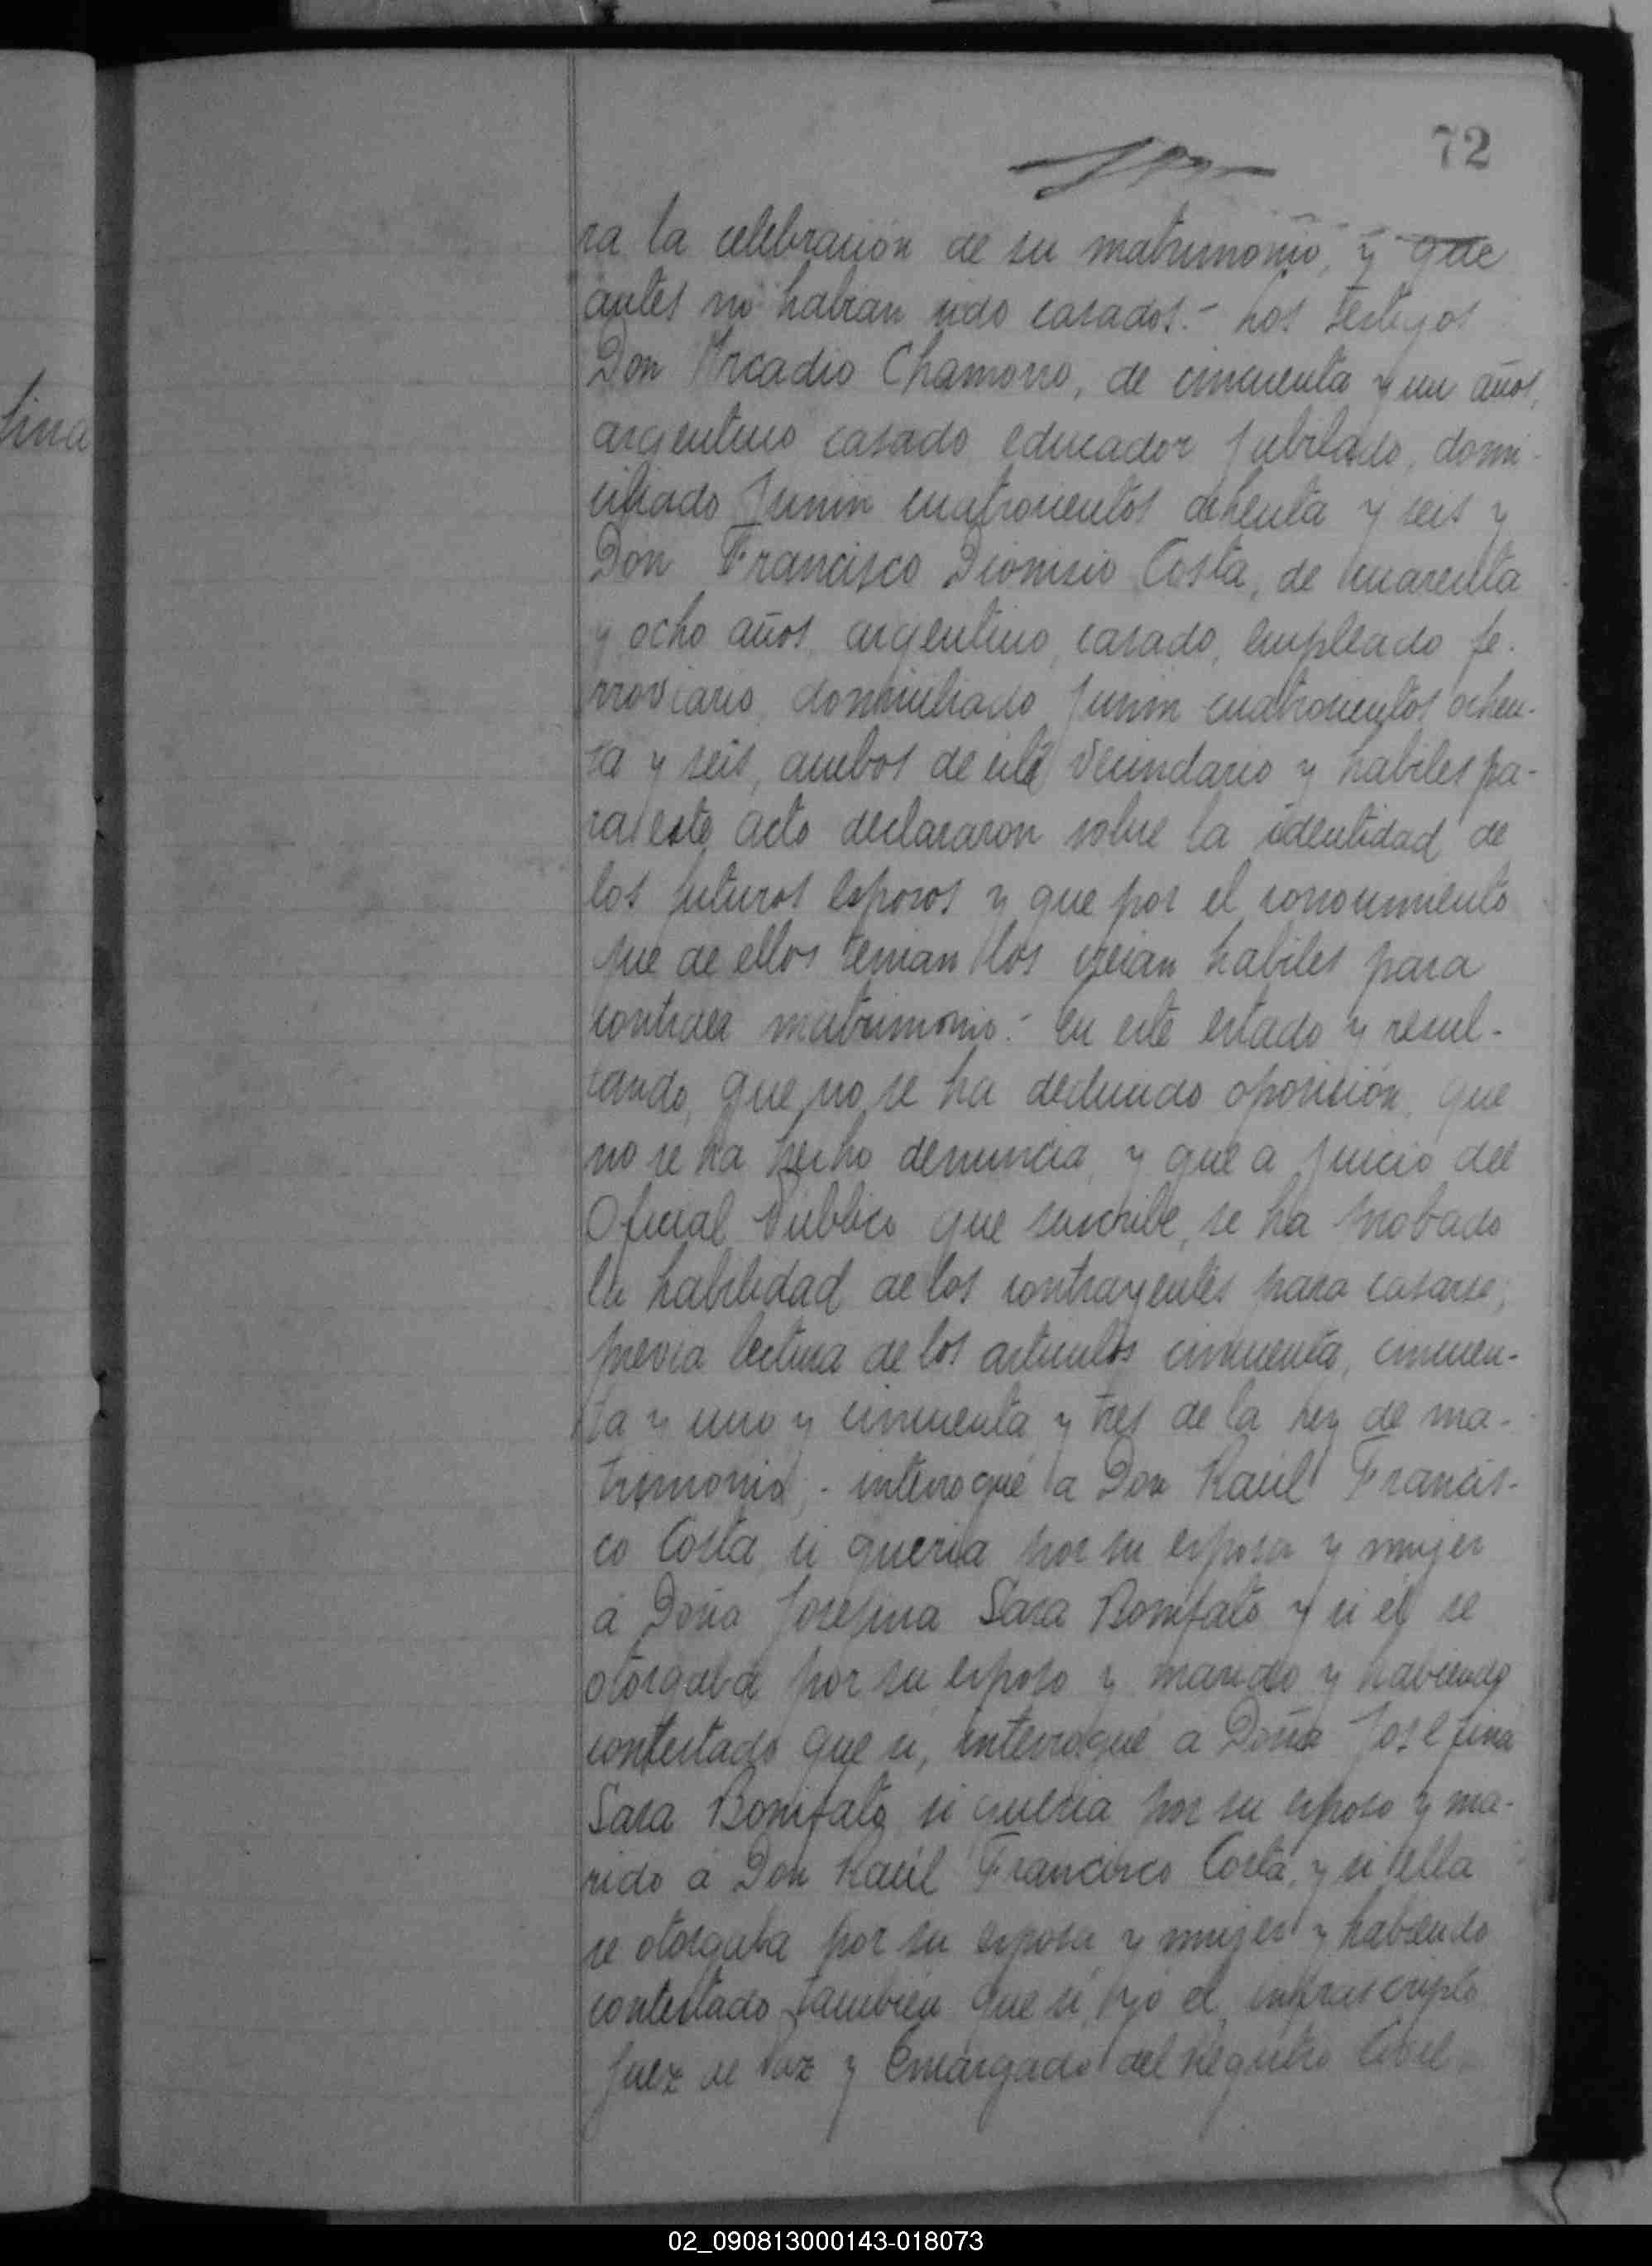 72
ra la celebración de su matrimonio, y que
antes no habian sido casados.- Los testigos
Don Arcadio Chamorro, de cincuenta y un años,
tina
argentino casado educador jubilado, domi-
ciliado Junin cuatrocientos ochenta y seis y
Don Francisco Dionisio Costa, de cuarenta
y ocho años argentino, casado, empleado fe-
rroviario, domiciliado Junin cuatrocientos ochen-
ta y seis, ambos de este vecindario y habiles pa-
ra este acto declararon sobre la identidad de
los futuros esposos y que por el conocimiento
que de ellos tenian los creian habiles para
contraer matrimonio.- En este estado y resul-
tando, que no se ha deducido oposición, que
no se ha hecho denuncia, y que a juicio del
Oficial Público que suscribe, se ha probado
la habilidad de los contrayentes para casarse,
previa lectura de los articulos cincuenta, cincuen-
ta y uno y cincuenta y tres de la Ley de ma-
trimonio,- interrogué a Don Raúl Francis-
co Costa, si queria por su esposa y mujer
á Doña Josefina Sara Bonifato y si él se
otorgaba por su esposo y marido y habiendo
contestado que si, interrogué a Doña Josefina
Sara Bonifato si queria por su esposo y ma-
rido á Don Raúl Francisco Costa, y si ella
se otorgaba por su esposa y mujer y habiendo
contestado tambien que si, yo el infrascripto
Juez de Paz y Encargado del Registro Civil
02_090813000143-018073